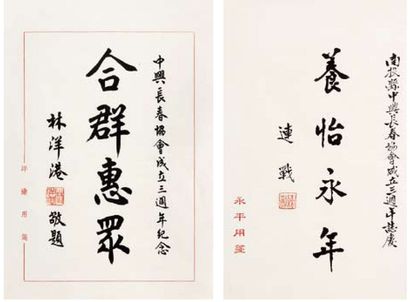 中興長春協會成立三週年紀念
合群惠眾
林洋港 敬題
用箋
南投縣中興長春協會成立三週年誌慶
養怡永年
連戰
永平用箋